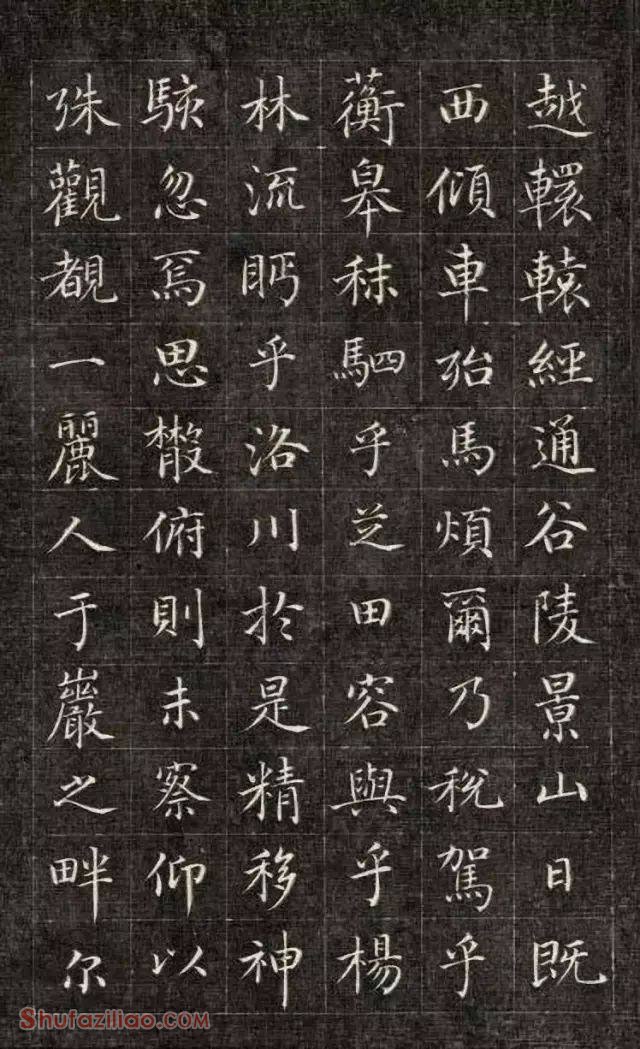 越轘轅經通谷陵景山日既
西傾車殆馬煩爾乃稅駕乎
蘅皋秣駟乎芝田容與乎楊
林流眄乎洛川於是精移神
駭忽焉思散俯則未察仰以
殊觀覩一麗人于巖之畔尔
Shufaziliao.com